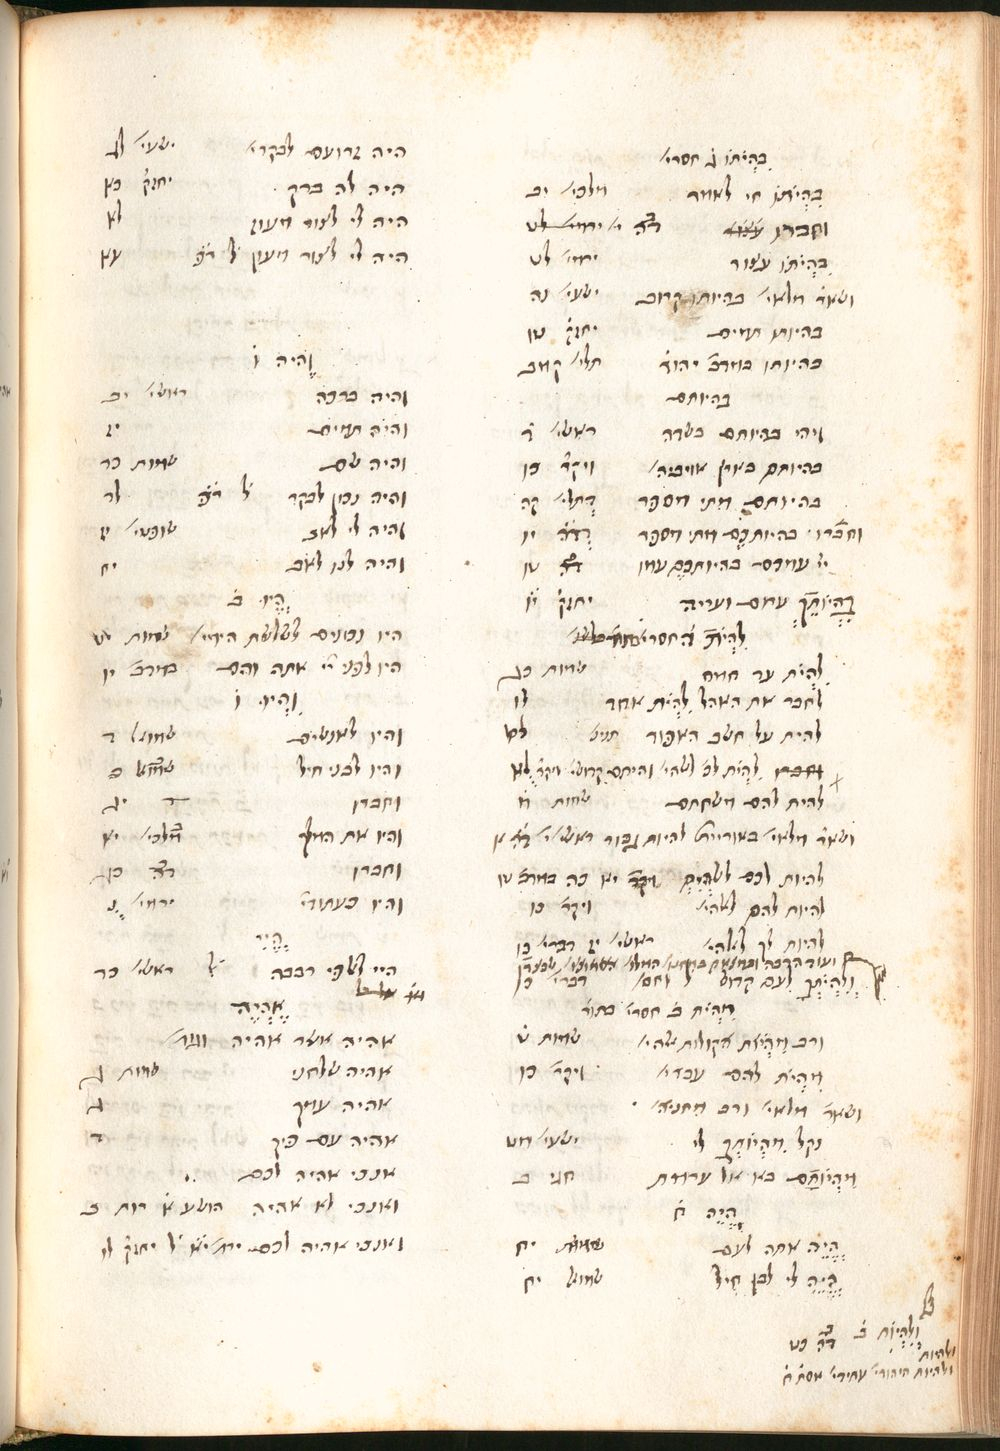 בִּהְיֹתוֹ ג חסרי׳
בִּהְיֹתוֹ חי לאחר מלכי׳ יב
וחברו
בִּהְיֹתוֹ עצור ירמי׳ לט
ושאר׳ מלאי׳ בהיותו קרוב ישעי׳ נה
בהיות תמים יחזק׳ טו
בהיותו במדבר יהודה תלי׳ קמב
בהיותם
ויהי בהיותם בשדה ראשי׳ ד
בהיותם בארץ אויביה׳ ויקר׳ כו
בהיותם מתי מספר דתלי׳ קה
וחברו׳ בהיותכם מתי מספר דד״ה יו
יי׳ עמכם בהיותכם עמו ד״ה טו
בִּהְיוֹתֵךְ ערום ועריה יחזק׳ יו
לִהְיֹת חסרי׳
לִהְיֹת ער חמת שמות כג
לחבר את האהל לִהְיֹת אחד לו
להית על חשב האפוד לט
לִהְיֹת לכ׳ לאלהי׳ והייתם קדושי׳ ויקר׳
להית להם משחתם שמות מ
ושאר׳ מלאי׳ באוריית׳ להיות גבור ראשי׳ י
להיות לכם לאלהים
להיות להם לאלהי׳ ויקר׳ כו
להיות לך לאלהי׳ ראשי׳ יז דברי׳ כו
וְלִהְיֹתְךָ לעם קדוש דברי׳ כו
מִהְיֹת ב חסרי׳ בתור׳
ורב מִהְיֹת הקולות אלהי׳ שמות ט
מִהְיֹת להם עבדי׳ ויקר׳ כו
ושאר׳ מלאי׳ ורב מחניה׳
נקל מִהְיוֹתְךָ לי ישעי׳ מט
מִהְיוֹתָם בא אל ערמת חגי ב
הֱיֵה
הֱיֵה אתה לעם שמות יח
הֱיֵה לי לבן חיל שמוא׳ יח
ולהיות ב
ד״ה כט
ולהיות
ולהיות היהודי׳ עתידי׳ אסת׳ ח
היה זרועם לבקרי׳ ישעי׳ לג
היה לה ברק יחזק׳ כא
היה לי לצור מעוז לא
היה לי לצור מעון עא
וֶהְיֵה
והיה ברכה ראשי׳ יב
והיה תמים יז
והיה שם שמות כד
והיה נכון לבקר לד
והיה לי לאב שופטי׳ יז
והיה לנו לאב יח
הֱיוּ ב
היו נכונים לשלשת הימי׳ שמות יט
היו לפני יי׳ אתה והם במדב׳ יו
וִהְיוּ
והיו לאנשים שמוא׳ ד
והיו לבני חיל שמוא׳ ב
וחברו יג
והיו את המלך מלכי׳ יא
וחברו ד״ה כג
והיו כעתודי׳ ירמי׳ נ
הֲיִי
היי לאלפי רבבה ראשי׳ כד
אֶהְיֶה
אהיה אשר אהיה
אהיה שלחני שמות ג
אהיה עמך ג
אהיה עם פיך ד
אנכי אהיה לכם
ואנכי לא אהיה הושע א רות ב
ואנכי אהיה לכם ירמי׳ יא ל יחזק׳ לו